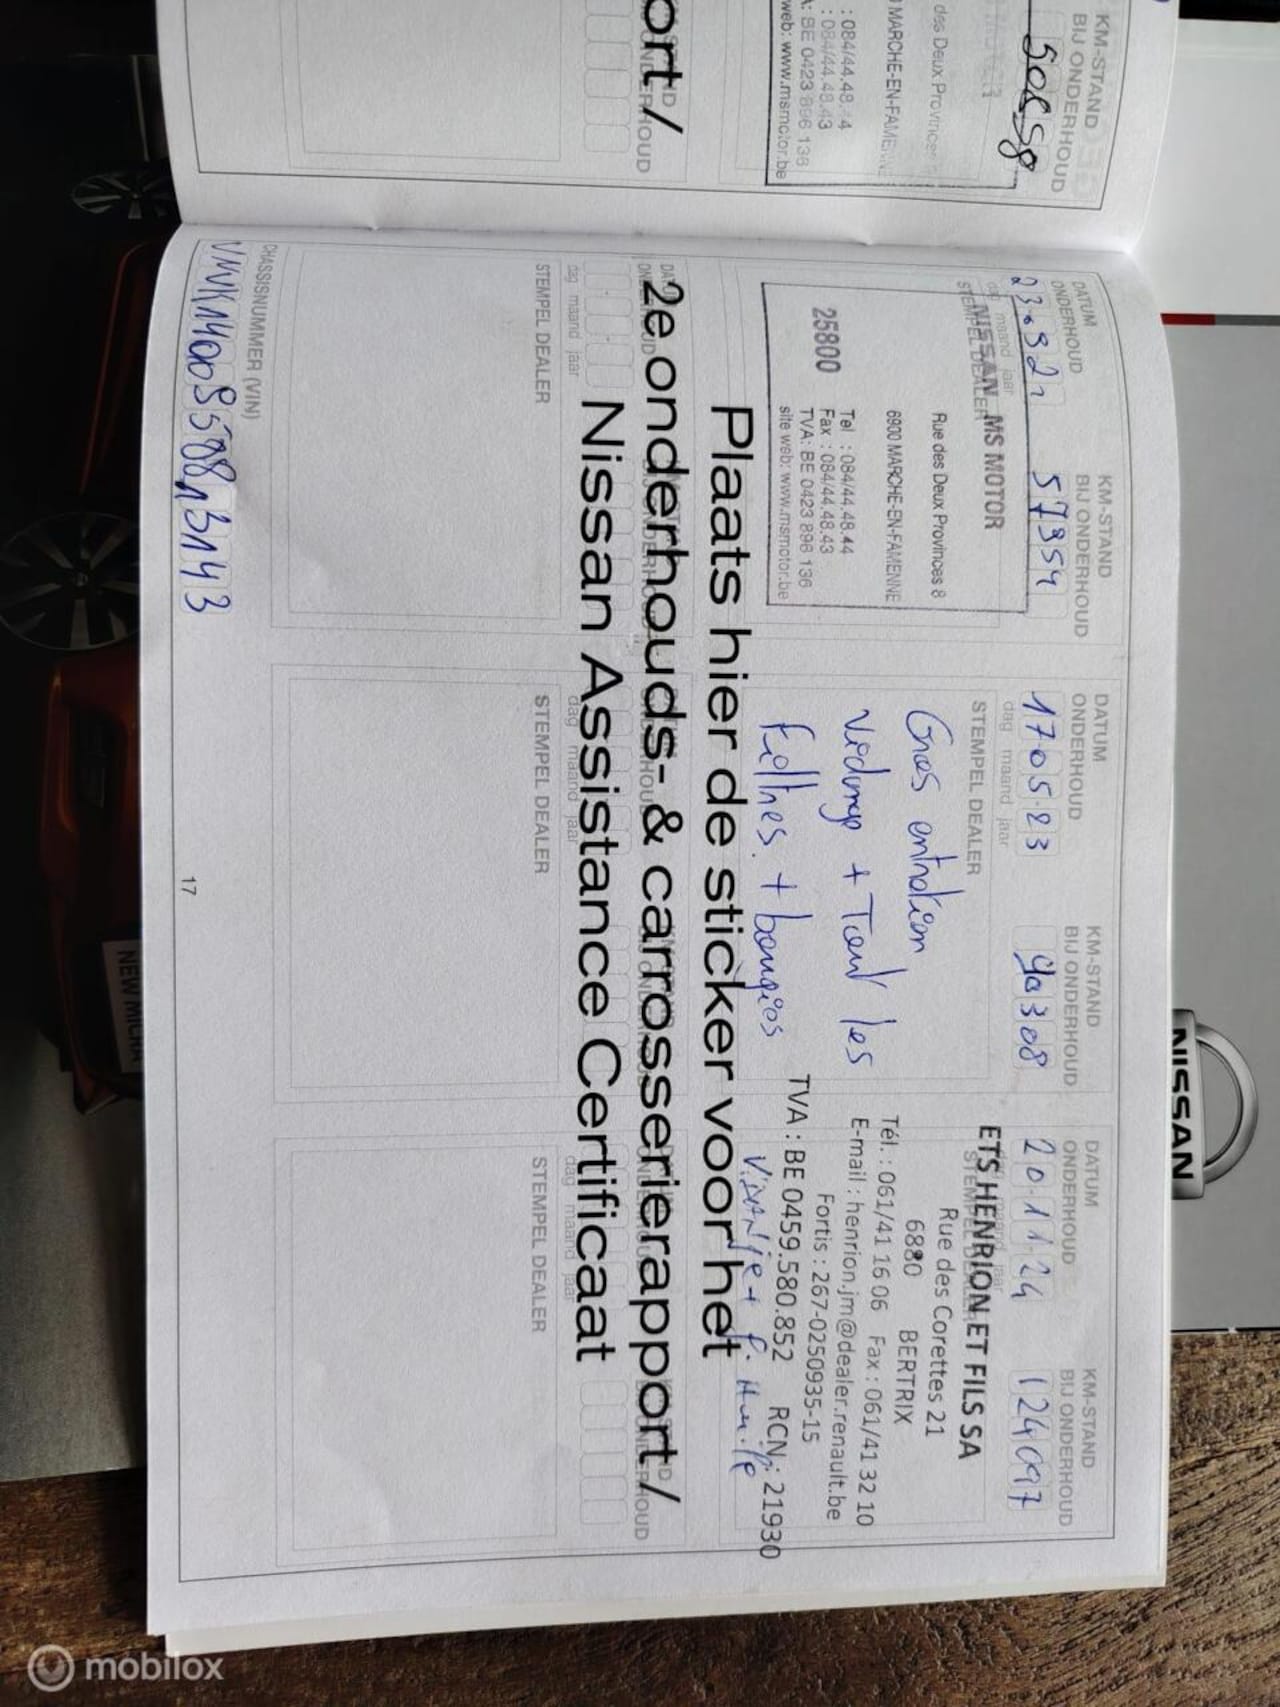 KM-STAND
BIJ ONDERHOUD
50658
des Deux Provinces
MARCHE-EN-FAMENNE
: 084/44.48.44
: 084/44.48.43
A: BE 0423 896 136
web: www.msmotor.be
ort /
ONDERHOUD
DATUM
ONDERHOUD
KM-STAND
BIJ ONDERHOUD
23.9.21
57954
dag maand jaar
STEMPEL DEALER
NISSAN MS MOTOR
Rue des Deux Provinces 8
6900 MARCHE-EN-FAMENNE
25800
Tel : 084/44.48.44
Fax : 084/44.48.43
TVA: BE 0423 896 136
site web: www.msmotor.be
DATUM
ONDERHOUD
KM-STAND
BIJ ONDERHOUD
17.05.23
90308
dag maand jaar
STEMPEL DEALER
Gros entretien
Vidange + Tout les
Filtres. + bougies
DATUM
ONDERHOUD
KM-STAND
BIJ ONDERHOUD
20.11.24
124097
STEMPEL DEALER
ETS HENRION ET FILS SA
Rue des Corettes 21
6880 BERTRIX
Tél. : 061/41 16 06 Fax : 061/41 32 10
E-mail : henrion.jm@dealer.renault.be
Fortis : 267-0250935-15
TVA : BE 0459.580.852 RCN : 21930
Plaats hier de sticker voor het
2e onderhouds- & carrosserierapport /
Nissan Assistance Certificaat
dag maand jaar
STEMPEL DEALER
dag maand jaar
STEMPEL DEALER
dag maand jaar
STEMPEL DEALER
CHASSISNUMMER (VIN)
17
NISSAN
NEW MICRA
mobilox